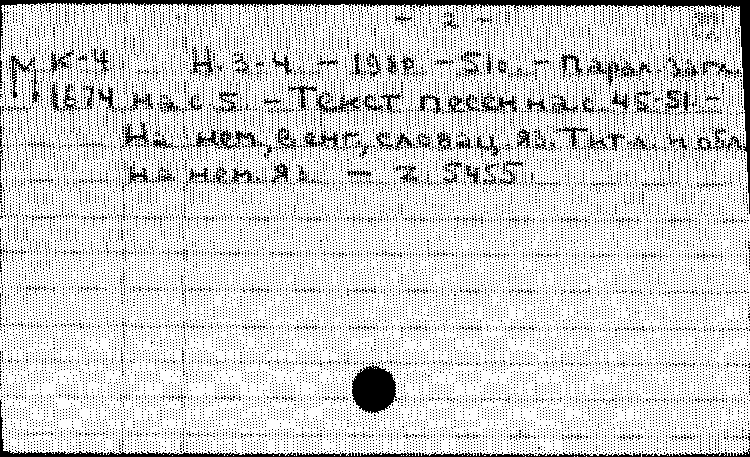 - 2 -
М К-4 Н. 3-4. - 1980. - 51с. - Парал. загл.
1674 на с 5. - Текст песен на с. 45-51. -
На нем., венг., словац. яз. Тит. л. и обл.
на нем. яз. - Z. 5455.